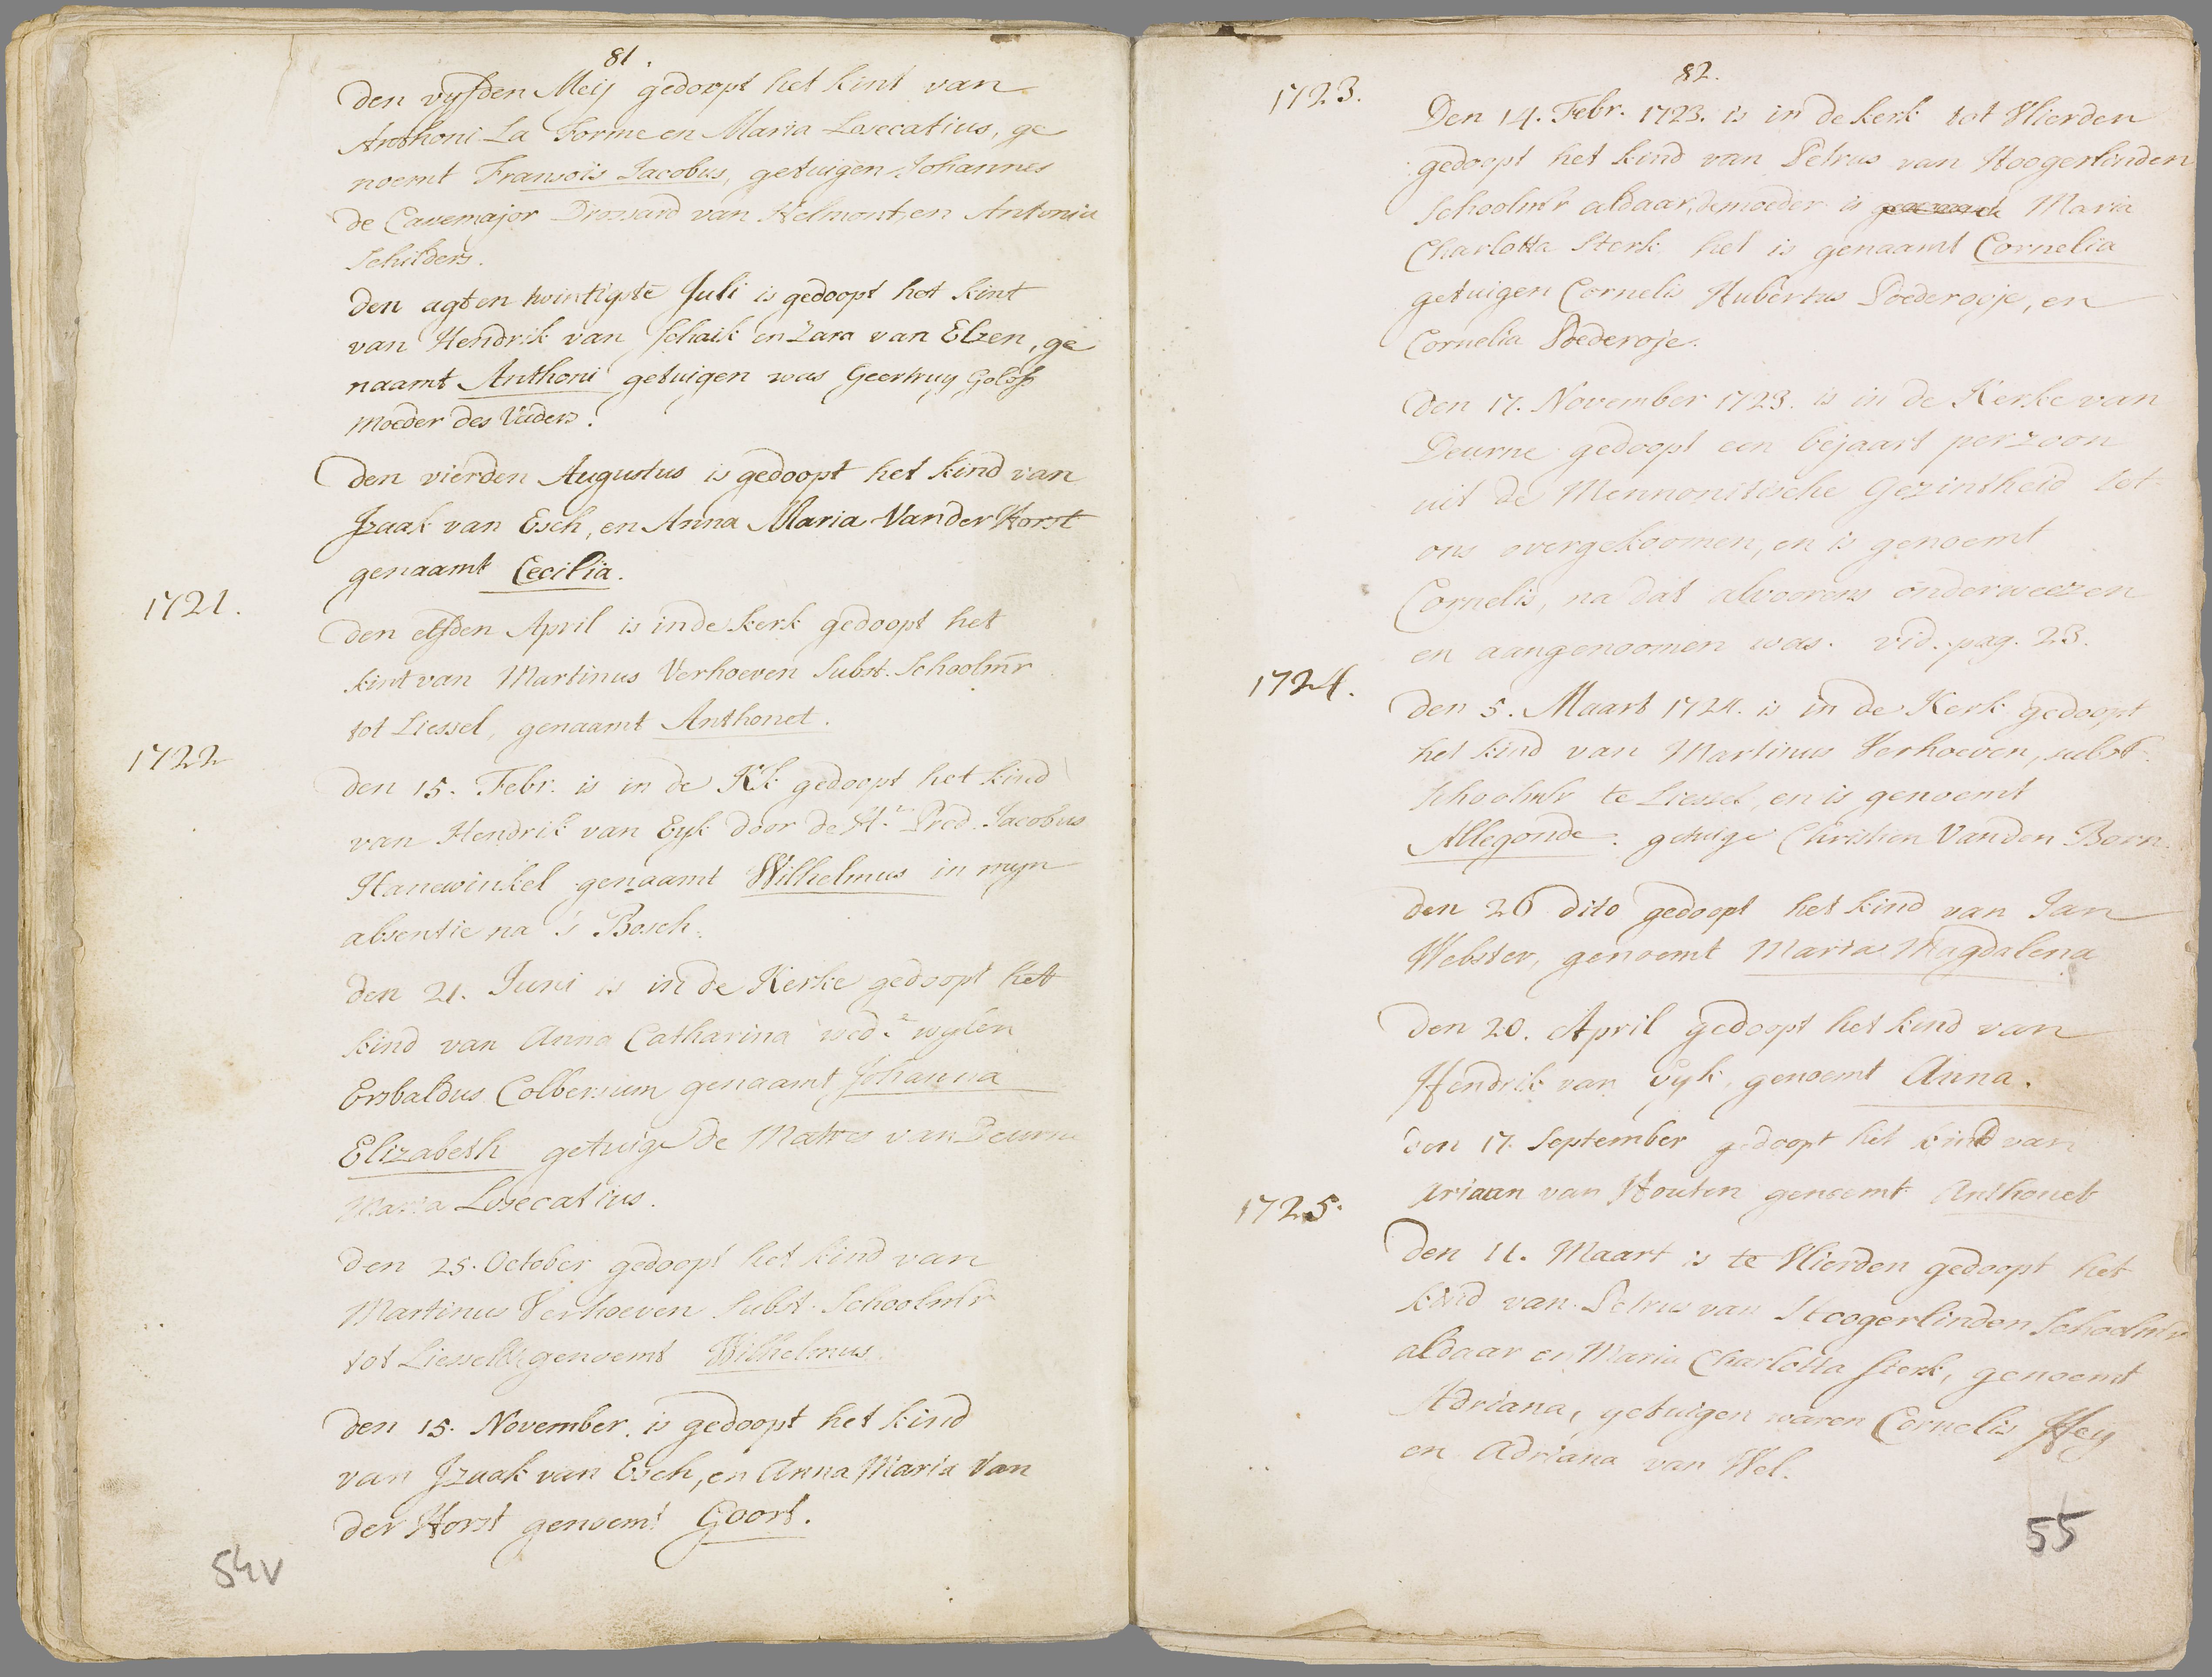 81.
Den vyfden Meij gedoopt het kint van
Anthoni La Forme en Maria Losecatius, ge
noemt Fransois Jacobus, getuigen Johannes
de Cavemajor Drossard van Helmont, en Antonia
Schilders.
Den agt en twintigste Juli is gedoopt het kint
van Hendrik van Schaik en Zara van Elzen, ge
naamt Anthoni getuigen was Geertruy
moeder des Vaders.
Den vierden Augustus is gedoopt het kind van
Izaak van Esch, en Anna Maria Van der Horst
genaamt Cecilia.
1721.
Den elfden April is in de kerk gedoopt het
kint van Martinus Verhoeven Subst. Schoolmr
tot Liessel, genaamt Anthonet.
1722
Den 15. Febr. is in de Kk gedoopt het kind
van Hendrik van Eyk door de Hr. Pred. Jacobus
Hanewinkel genaamt Wilhelmus in myn
absentie na 's Bosch.
Den 21. Juni is in de Kerke gedoopt het
kind van Anna Catharina wede. wylen
Ersbaldus Colbersum genaamt Johanna
Elizabeth getuige de van Deurne
Maria Losecatius.
Den 25. October gedoopt het kind van
Martinus Verhoeven Subst. Schoolmr
tot Liessel genoemt Wilhelmus
Den 15. November. is gedoopt het kind
van Izaak van Esch, en Anna Maria Van
der Horst genoemt Goort.
54v
82.
1723.
Den 14. Febr. 1723. is in de kerk tot Vlierden
gedoopt het kind van Petrus van Hoogerlinden
Schoolmr aldaar, de moeder is Maria
Charlotta Sterk het is genaamt Cornelia
getuigen Cornelis Hubertus Poederoije, en
Cornelia Poederoje.
Den 17. November 1723. is in de Kerke van
Deurne gedoopt een bejaart perzoon
uit de Mennonitische Gezintheid tot
ons overgekoomen, en is genoemt
Cornelis, na dat alvoorens onderweezen
en aangenoomen was. vid. pag. 23.
1724.
Den 5. Maart 1724. is in de Kerk gedoopt
het kind van Martinus Verhoeven, subst.
Schoolmr te Liessel, en is genoemt
Allegonde. getuige Christien Van den Born.
Den 26 dito gedoopt het kind van Jan
Webster, genoemt Maria Magdalena
Den 20. April gedoopt het kind van
Hendrik van Eyk, genoemt Anna.
Den 17. September gedoopt het kind van
Ariaan van Houten genoemt Anthonet
1725.
Den 11. Maart is te Vlierden gedoopt het
kind van Petrus van Hoogerlinden Schoolmr
aldaar en Maria Charlotta Sterk, genoemt
Adriana, getuigen waren Cornelis Heij
en Adriana van Wel.
55